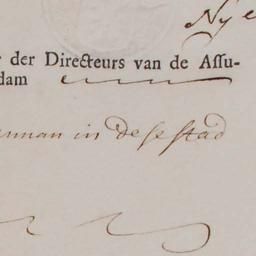 Nye
der Directeurs van de Assu-
dam
nman in dese stad